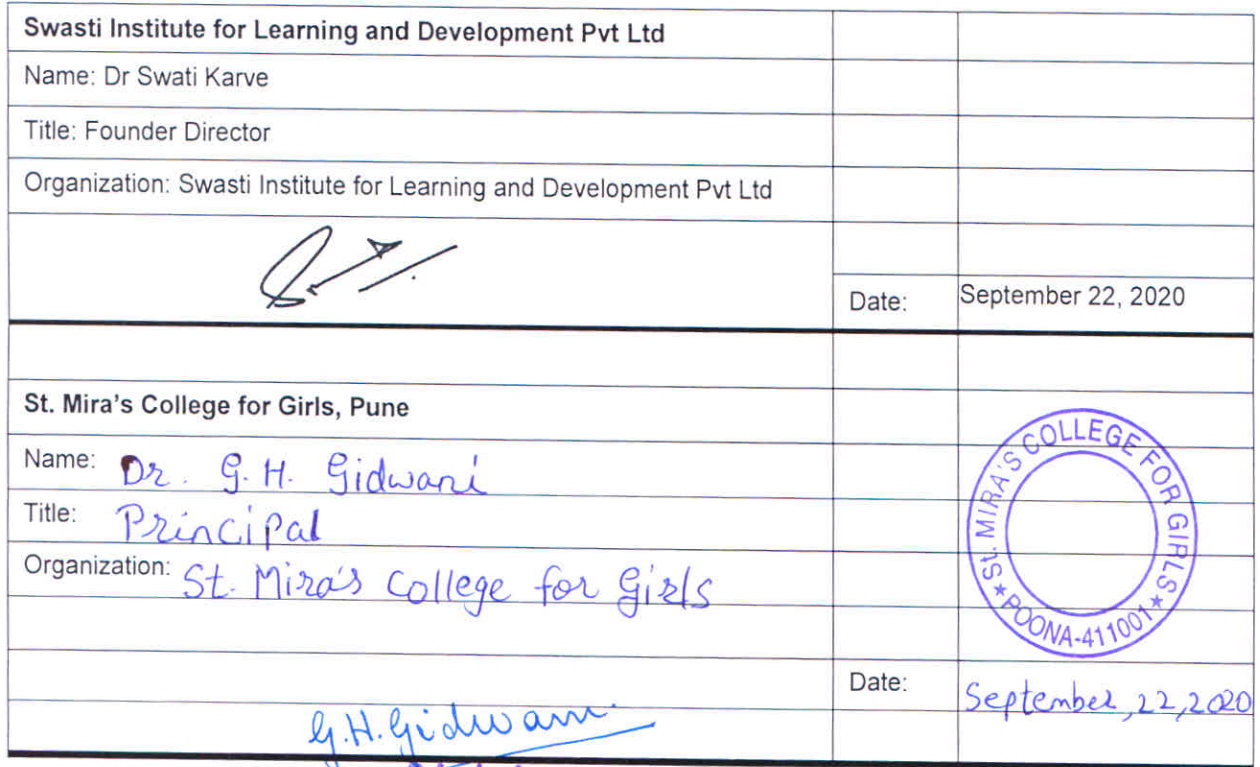 Swasti Institute for Learning and Development Pvt Ltd
Name: Dr Swati Karve
Title: Founder Director
Organization: Swasti Institute for Learning and Development Pvt Ltd
Date: September 22, 2020
St. Mira's College for Girls, Pune
Name: Dr. G. H. Gidwani
Title: Principal
Organization: St. Mira's College for Girls
St. MIRA'S COLLEGE FOR GIRLS
★ POONA-411001 ★
Date: September, 22, 2020
G.H.Gidwani